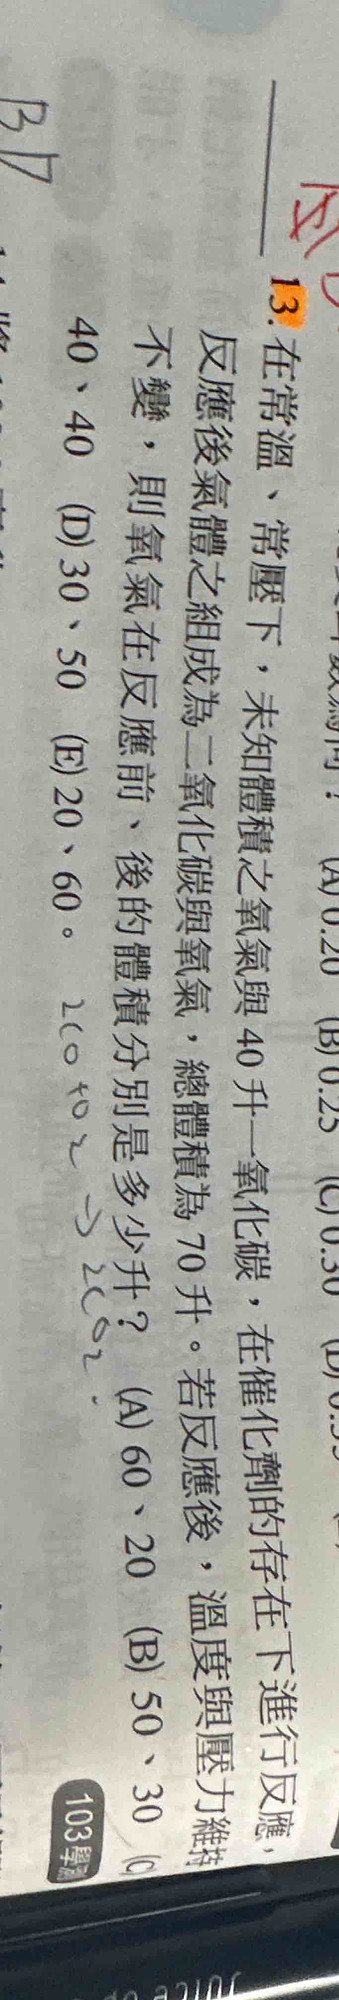 (A) 0.20 (B) 0.25 (C) 0.30
13. 在常溫、常壓下，未知體積之氧氣與 40 升一氧化碳，在催化劑的存在下進行反應，
反應後氣體之組成為二氧化碳與氧氣，總體積為 70 升。若反應後，溫度與壓力維持
不變，則氧氣在反應前、後的體積分別是多少升？ (A) 60、20 (B) 50、30 (C)
40、40 (D) 30、50 (E) 20、60。
103學測
2CO+O2 → 2CO2.